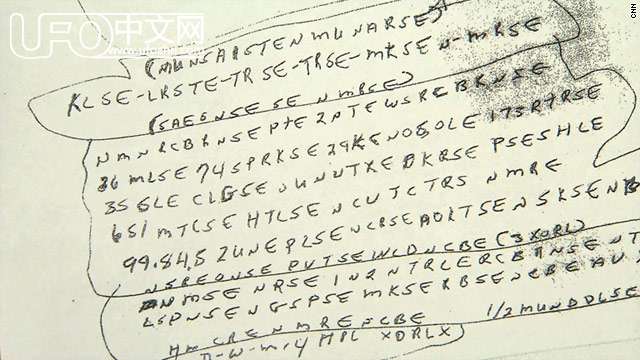 UFO中文网
CNN
(MUNSARSTENMUNARSE)
KLSE-LRSTE-TRSE-TRSE-MKSEN-MRSE
(SAEGNSESENMRSE)
NMNRCBRNSEPTE2PTEWSRCBRNSE
36MLSE74SPRKSE29KENOSOLE173RTRSE
35GLECLGSENUNUTREDKRSEPSESHLE
651MTCSEHTLSENCUTCTRSNMRE
99.84.52UNEPLSENCRSEAOLTSENSKSENB
NSREONSEPUTSEWLDNCBE(3XORL)
NMSENRSEIN2NTRLERCBRNSENT
LSPNSENGSPSEMKSERBSENCBEAU
HMCRENMREFCBE 1/2MUNDDLSE
D-W-M-4HPLXDRLX)